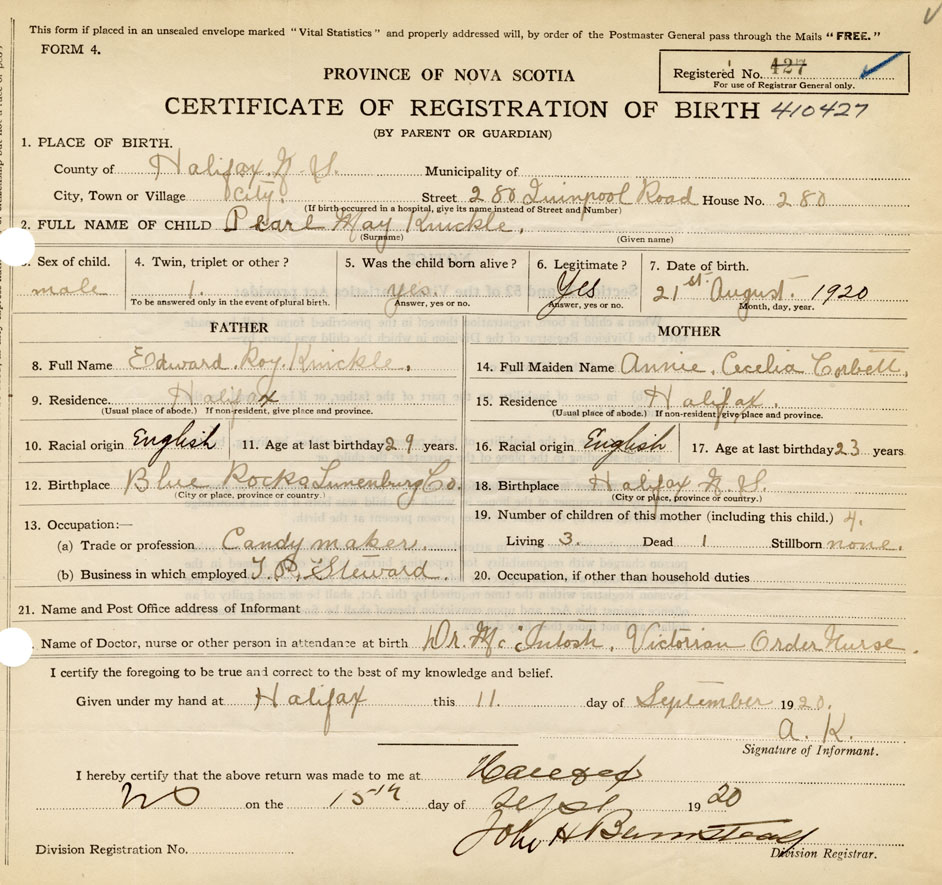 This form if placed in an unsealed envelope marked "Vital Statistics" and properly addressed will, by order of the Postmaster General pass through the Mails "FREE."
FORM 4.
Registered No. 427
For use of Registrar General only.
PROVINCE OF NOVA SCOTIA
CERTIFICATE OF REGISTRATION OF BIRTH 410427
(BY PARENT OR GUARDIAN)
1. PLACE OF BIRTH.
County of Halifax. N. S. Municipality of
City, Town or Village City. Street 280 Quinpool Road House No. 280
(If birth occurred in a hospital, give its name instead of Street and Number)
2. FULL NAME OF CHILD Pearl May Knickle,
(Surname) (Given name)
Sex of child. 4. Twin, triplet or other? 5. Was the child born alive? 6. Legitimate? 7. Date of birth.
male 1. yes. Yes 21st August. 1920
To be answered only in the event of plural birth. Answer, yes or no. Answer, yes or no. Month, day, year.
FATHER MOTHER
8. Full Name Edward. Roy. Knickle,
14. Full Maiden Name Annie, Cecelia Corbett,
9. Residence. Halifax
15. Residence Halifax.
(Usual place of abode.) If non-resident, give place and province.
(Usual place of abode.) If non-resident, give place and province.
10. Racial origin English 11. Age at last birthday 29 years.
16. Racial origin English 17. Age at last birthday 23 years
12. Birthplace Blue Rocks Lunenburg Co.
18. Birthplace Halifax N. S.
(City or place, province or country.)
(City or place, province or country.)
13. Occupation:—
19. Number of children of this mother (including this child.) 4.
(a) Trade or profession Candy maker.
Living 3. Dead 1 Stillborn none.
(b) Business in which employed J. P. Steward.
20. Occupation, if other than household duties
21. Name and Post Office address of Informant
Name of Doctor, nurse or other person in attendance at birth Dr. McIntosh, Victorian Order Nurse.
I certify the foregoing to be true and correct to the best of my knowledge and belief.
Given under my hand at Halifax this 11. day of September 1920.
A. K.
Signature of Informant.
I hereby certify that the above return was made to me at Halifax
NS on the 15th day of Sept 1920
John H Barnstead
Division Registration No. Division Registrar.